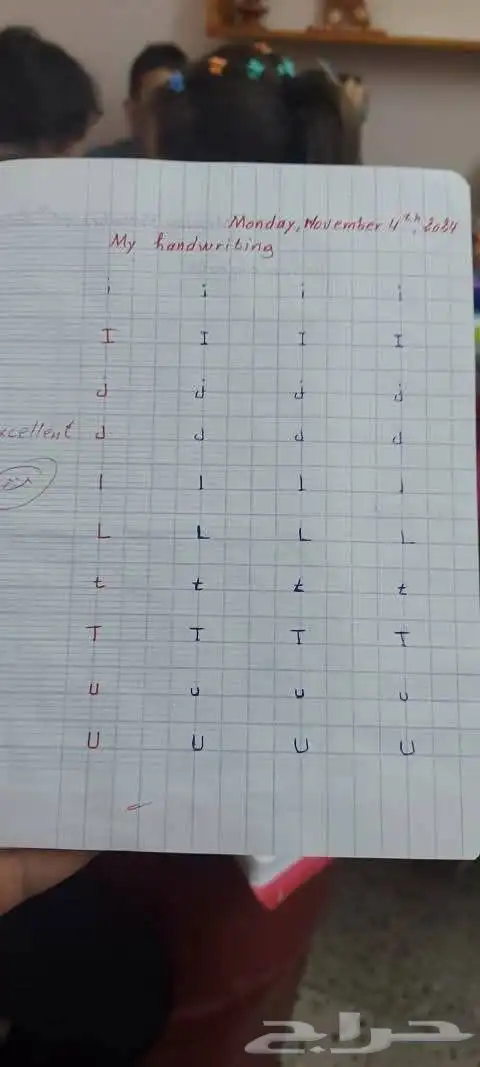 Monday, November 4th, 2024
My handwriting
i i i i
I I I I
j j j j
Excellent J J J J
l l l l
L L L L
t t t t
T T T T
u u u u
U U U U
حراج